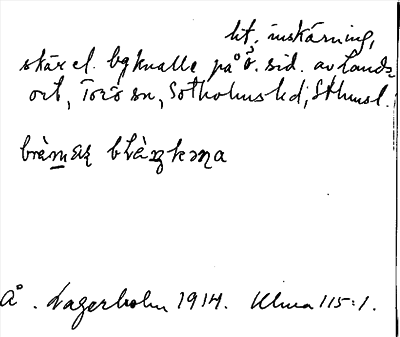 lit. inskärning,
skär el. bgknalle på ö. sid. av Lands-
ort, Torö sn, Sotholms hd, Sthmsl.
Å. Lagerholm 1914. Ulma 115:1.